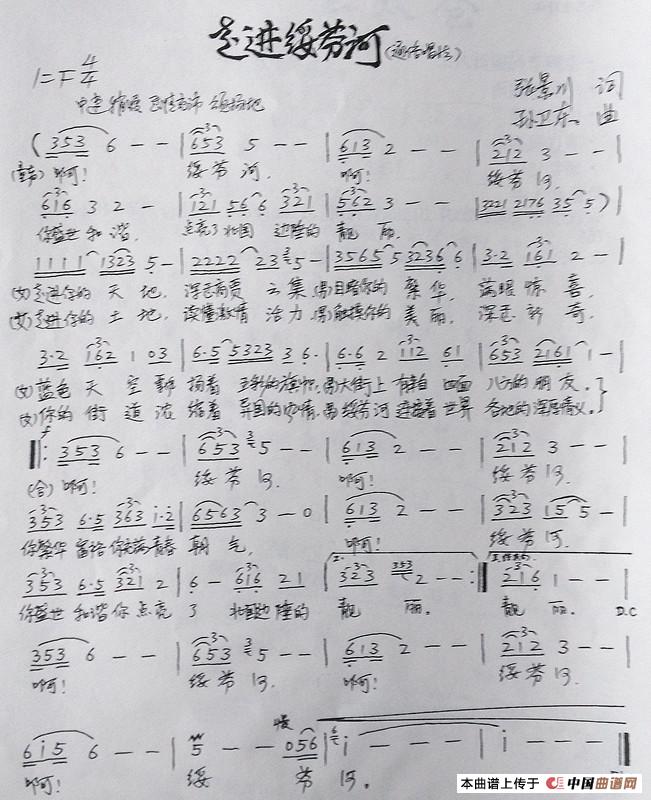 走进绥芬河(通俗唱法)
1=F 4/4
张景川 词
孙卫东 曲
(353 6 - - | 653 5 - - | 613 2 - - | 212 3 - - |
啊! 绥芬河, 啊! 绥芬河,
616 3 2 - | 121 56 6 321 | 562 3 - - | 3221 2176 35 5) |
你盛世和谐, 点亮了北国 边陲的 靓 丽.
1111 1323 5 - | 2222 2 23 5 - | 3565 5 3236 6 | 3·2 161 2 - |
(女)走进你的 天 地, 云集, (男)目睹你的 繁华, 惊喜,
(女)走进你的 土 地, 读懂激情 活力, (男)触摸你的 美丽, 新奇,
3·2 162 1 03 | 6·5 5323 3 6· | 6·6 2 112 61 | 653 2161 1 - |
(女)蓝色 天 空 扬着 的旗帜, (男)大街上 有来自 四面 八方的 朋友.
(女)你的 街 道 浓缩着 异国的风情, (男)绥芬河 连接着 世界 各地的深厚情义.
353 6 - - | 653 5 - - | 613 2 - - | 212 3 - - |
(合)啊! 绥芬河. 啊! 绥芬河.
353 6·5 363 i·2 | 6563 3 - 0 | 613 2 - - | 323 15 5 - |
你繁华 青春 朝气, 啊! 绥芬河.
353 6·5 321 2 | 6 - 616 21 | 323 353 2 - - :| 216 1 - - |
你盛世 和谐 你点亮 了 北国边陲的 靓 丽. 靓 丽. D.C
353 6 - - | 653 5 - - | 613 2 - - | 212 3 - - |
啊! 绥芬河. 啊! 绥芬河.
慢
6i5 6 - - | 5 - - 056 | i - - - | i - - - |
啊! 绥 芬 河.
本曲谱上传于 中国曲谱网